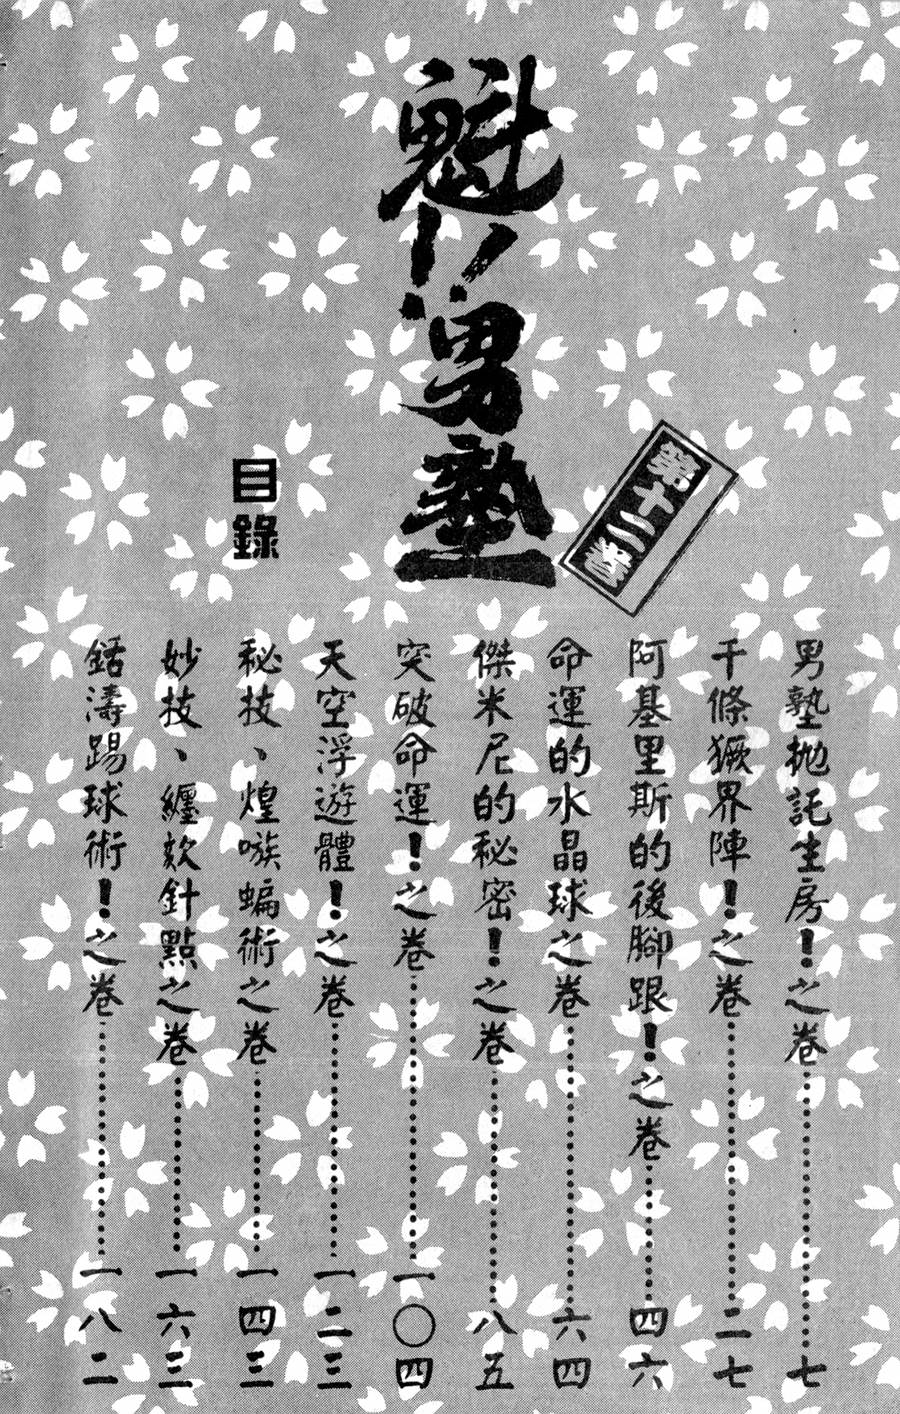 魁!!男塾
第十二卷
目錄
男塾拋託生房!之卷……七
千條獗界陣!之卷……二七
阿基里斯的後腳跟!之卷……四六
命運的水晶球之卷……六四
傑米尼的秘密!之卷……八五
突破命運!之卷……一〇四
天空浮遊體!之卷……一二三
秘技、煌嗾蝙術之卷……一四三
妙技、纏欬針點之卷……一六三
銛濤踢球術!之卷……一八二